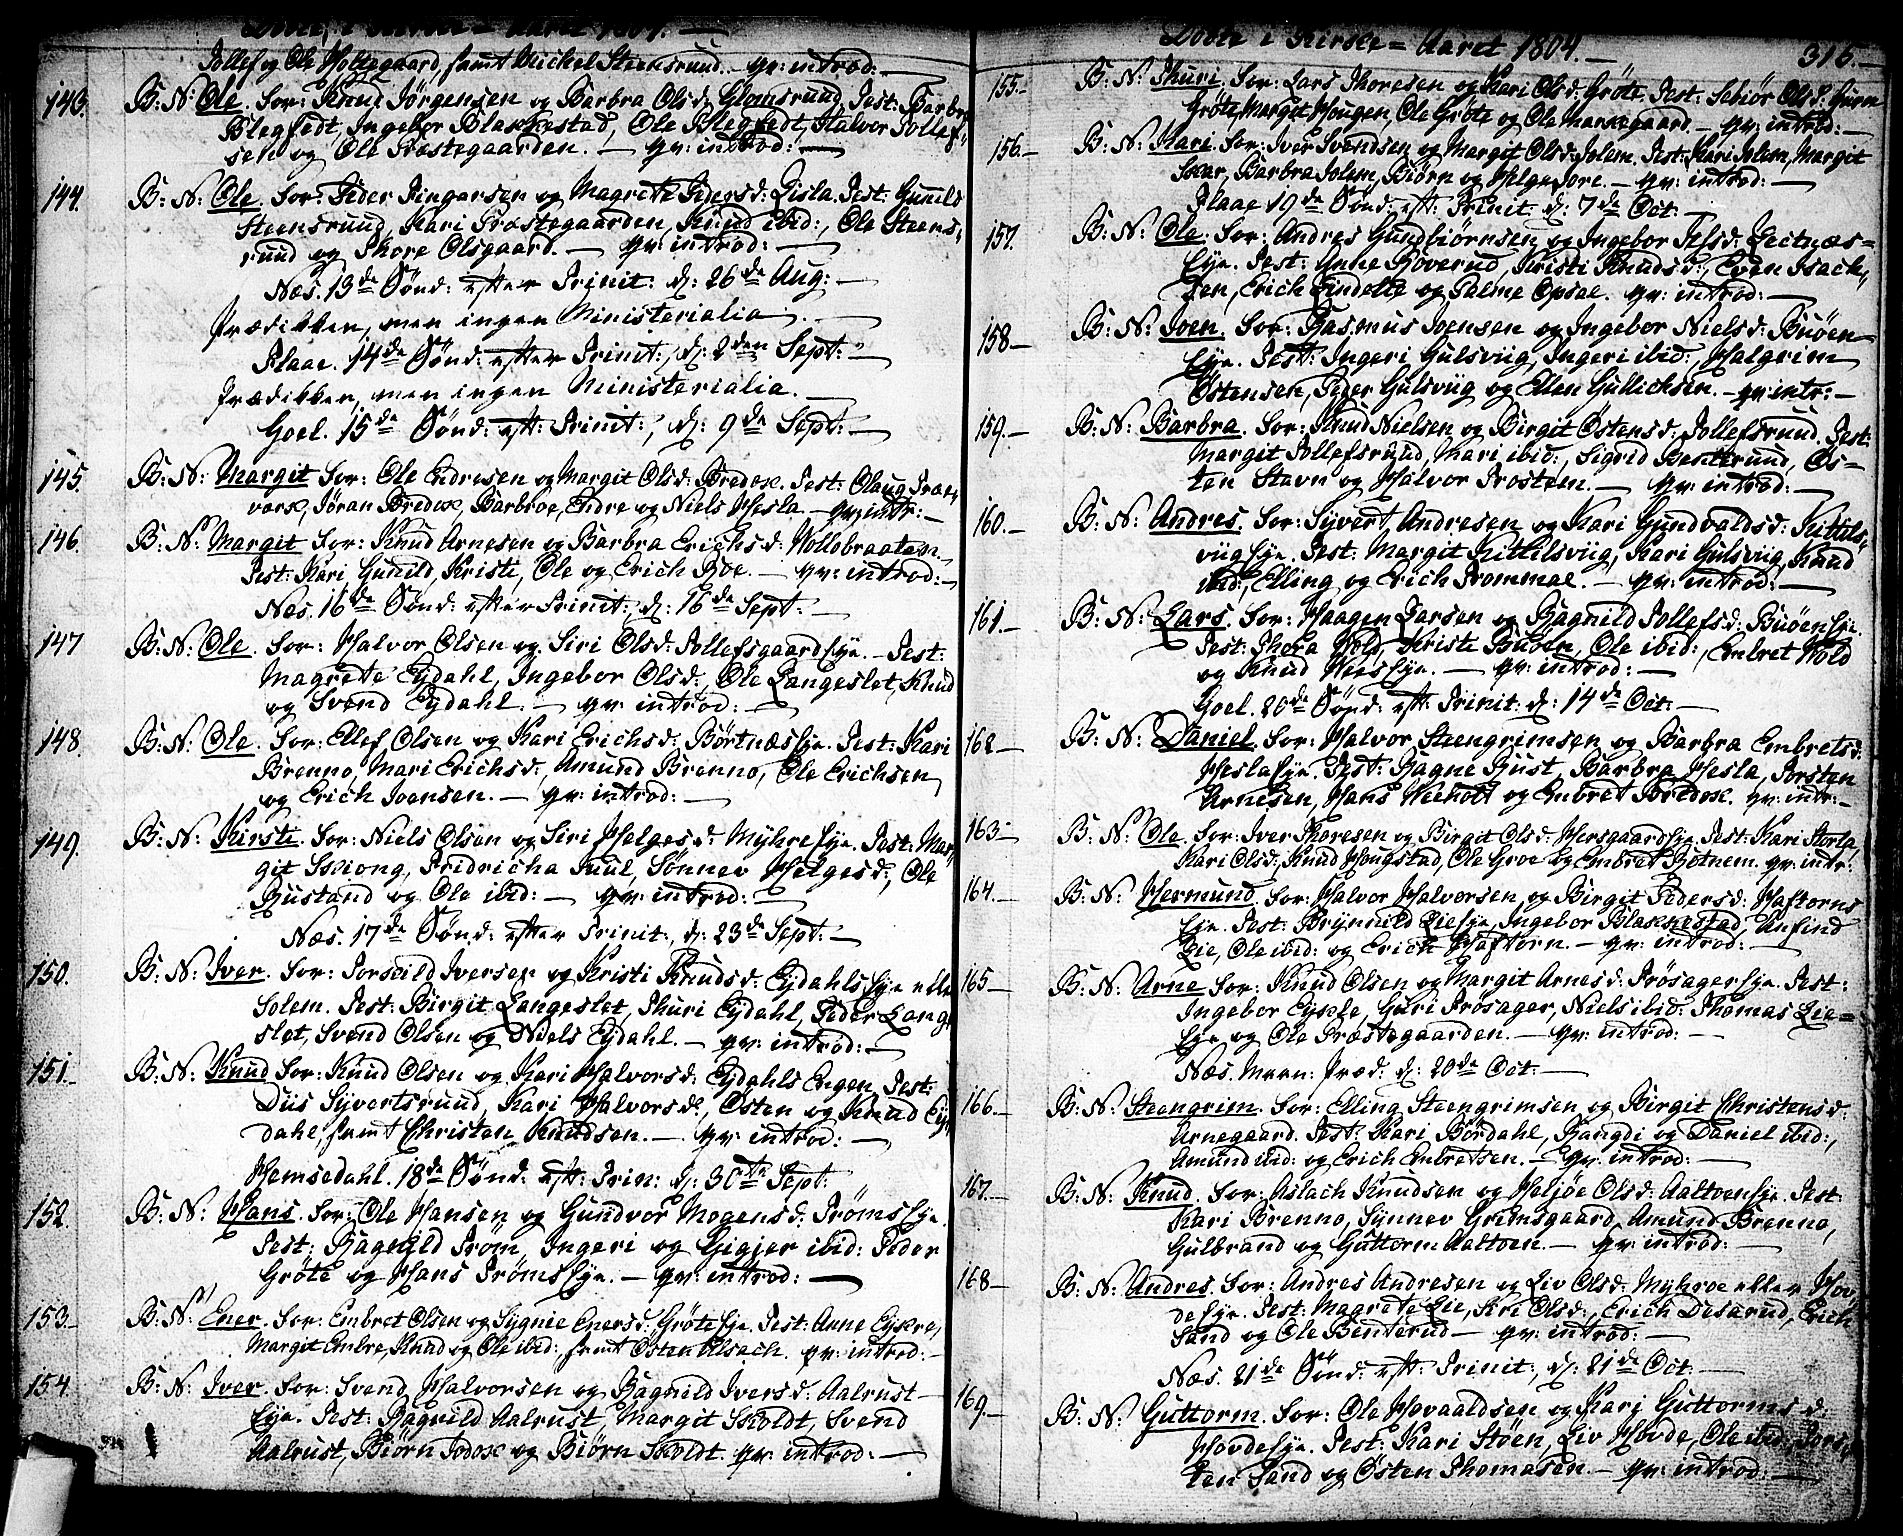 Døbte i Kirke = Aaret 1804. —
Tollef og Ole Holtegaard, samt Michel Steensrund. — qv: introd: —
143. B: N: Ole. For: Knud Jörgensen og Barbra Olsd: Glomsrund, Test: Barbra
Blegfedt, Ingebor Blakkestad, Ole Blegfedt, Halvor Tollef-
sen og Ole Præstegaarden. — qv: introd: —
144. B: N: Ole. For: Peder Pingarsen og Magrete Pedersd: Lisla. Test: Gunild
Steensrund, Kari Præstegaarden, Knud ibid:, Ole Steens-
rund og Thore Olsgaard. — qv: introd: —
Næs. 13de Sønd: efter Trinit: d: 26de Aug: —
Prædikken, men ingen Ministerialia. —
Plaae. 14de Sønd: efter Trinit:, d: 2den Sept: —
Prædikken, men ingen Ministerialia. —
Goel. 15de Sønd: eft: Trinit:, d: 9de Sept: —
145. B: N: Margit For: Ole Endresen og Margit Olsd: Bredok. Test: Olaug Præe-
værk, Jøran Bredok, Barbroe, Endre og Niels Hesla. — qv: intr: —
146. B: N: Margit For: Knud Arnesen og Barbra Erichsd: Wollobraaten.
Test: Kari, Gunild, Kristi, Ole og Erich Roe. — qv: introd: —
Næs. 16de Sønd: efter Trinit: d: 16de Sept: —
147 B: N: Ole. For: Halvor Olsen og Siri Olsd: Tollefsgaardseje. — Test:
Magrete Eydahl, Ingebor Olsd:, Ole Langeslet, Knud
og Svend Eydahl. — qv: introd: —
148. B: N: Ole. For: Ellef Olsen og Kari Erichsd: Börtnæseje. Test: Kari
Brenno, Mari Erichsd:, Amund Brenno, Ole Erichsen
og Erich Joensen. — qv: introd: —
149. B: N: Kirsti. For: Niels Olsen og Siri Helgesd: Myhreeje. Test: Mar-
git Skiong, Fridricha Juul, Sønnev Helgesd:, Ole
Rustand og Ole ibid: — qv: introd: —
Næs. 17de Sønd: efter Trinit:, d: 23de Sept: —
150. B: N: Iver. For: Torkild Iversen og Kristi Knudsd: Eydahlseje eller
Solem. Test: Birgit Langeslet, Thuri Eydahl, Peder Lang-
slet, Svend Olsen og Niels Eydahl. — qv: introd: —
151. B: N: Knud For: Knud Olsen og Kari Halvorsd: Eydahls Engen. Test:
Diis Syvertsrund, Kari Halvorsd:, Østen og Knud Ey-
dahl, samt Christen Knudsen. — qv: introd: —
Hemsedahl. 18de Sønd: eft: Trin: d: 30te Sept:
152. B: N: Hans. For: Ole Hansen og Gundvor Mogensd: Trömseje.
Test: Ragnild Tröm, Ingeri og Gigjer ibid: Peder
Gröte og Hans Trömseje. — qv: introd: —
153. B: N: Ener. For: Embret Olsen og Sygnie Enersd: Gröteeje. Test: Anne Eykre,
Margit Embre, Knud og Ole ibid:, samt Østen Ulsach. qv: introd: —
154. B: N: Iver. For: Svend Halvorsen og Ragnild Iversd: Aalrust-
Eje. Test: Ragnild Aalrust, Margit Skoldt, Svend
Aalrust, Biörn Jodok og Biörn Skoldt. qv: introd: —
Døbte i Kirke = Aaret 1804. — 316. —
155. B: N: Thuri. For: Lars Thoresen og Kari Olsd: Gröte. Test: Sebiör Olsd: Guru
Gröte, Margit Hougen, Ole Gröte og Ole Markegaard. — qv: introd: —
156. B: N: Kari. For: Iver Svendsen og Margit Olsd: Solem. Test: Kari Solem, Margit
Skar, Barbra Solem, Biörn og Helge Tore. — qv: introd: —
Plaae 19de Sønd: eft: Trinit: d: 7de Oct: —
157. B: N: Ole. For: Andres Gundbiörnsen og Ingebor Jefsd: Lectnæs-
Eje. Test: Anne Roverud, Kristi Knudsd:, Even Isach-
sen, Erich Lindelie og Palme Opsae. qv: introd: —
158 — B: N: Joen. For: Rasmus Joensen og Ingebor Nielsd: Buöen-
Eje. Test: Ingeri Gulsviig, Ingeri ibid:, Halgrim
Østensen, Peder Gulsviig og Ellen Gullichsen. — qv: intr: —
159. — B: N: Barbra. For: Knud Nielsen og Birgit Østensd: Tollefsrund. Test:
Margit Tollefsrund, Mari ibid:, Sigrid Benterund, Øs-
ten Stavn og Halvor Trostem. — qv: introd: —
160. — B: N: Andres. For: Syvert Andresen og Kari Gundvaldsd: Kittils-
viigeje. Test: Margit Kittilsviig, Kari Gulsviig, Knud
ibid:, Elling og Erich Trommae. — qv: introd: —
161. — B: N: Lars. For: Haagen Larsen og Ragnild Tollefsd: Buöeneje.
Test: Thora Wold, Kristi Buöen, Ole ibid:, Embret Wold
og Knud Weeseje. — qv: introd: —
Goel. 20de Sønd: eft: Trinit: d: 14de Oct: —
162 — B: N: Daniel. For: Halvor Steengrimsen og Barbra Embretsd:
Heslaeje. Test: Ragne Rust, Barbra Hesla, Torsten
Arnesen, Hans Weeholt og Embret Bredok. qv: intr: —
163 — B: N: Ole. For: Iver Thoresen og Birgit Olsd: Hersgaardseje. Test: Kari Storla,
Kari Olsd:, Knud Hougstad, Ole Groe og Embret Rotnem. qv: intr:
164. B: N: Hermund. For: Halvor Halvorsen og Birgit Pedersd: Haftorns
Eje. Test: Brynnild Lieeje, Ingebor Blakkestad, Anfind
Lie, Ole ibid: og Erich Haftorn. — qv: introd: —
165 — B: N: Arne For: Knud Olsen og Margit Arnesd: Trösagereje. Test:
Ingebor Eykle, Guri Trösager, Niels ibid: Thomas Lie-
Eje og Ole Præstegaarden. — qv: introd: —
Næs. Mænn: Præd: d: 20de Oct: —
166. — B: N: Steengrim. For: Elling Steengrimsen og Birgit Christensd:
Arnegaard. Test: Kari Bördahl, Rangdi og Daniel ibid:,
Amund ibid: og Erich Embretsen. — qv: introd: —
167. — B: N: Knud. For: Aslach Knudsen og Heljöe Olsd: Aaltveneje. Test:
Kari Brenno, Synnev Grimsgaard, Amund Brenno,
Gulbrand og Guttorm Aaltven. — qv: introd: —
168 — B: N: Andres. For: Andres Andresen og Liv Olsd: Myhroe eller Hov-
deeje. Test: Magrete Lie, Siri Olsd:, Erich Desarud, Erich
Sand og Ole Benterud — qv: introd: —
Næs. 21de Sønd: eft: Trinit:, d: 21de Oct: —
169 — B: N: Guttorm. For: Ole Hovaaldsen og Kari Guttormsd:
Hovdeeje. Test: Kari Støen, Liv Hovde, Ole ibid:, Tors-
ten Sand og Østen Thomasen. — qv: introd: —